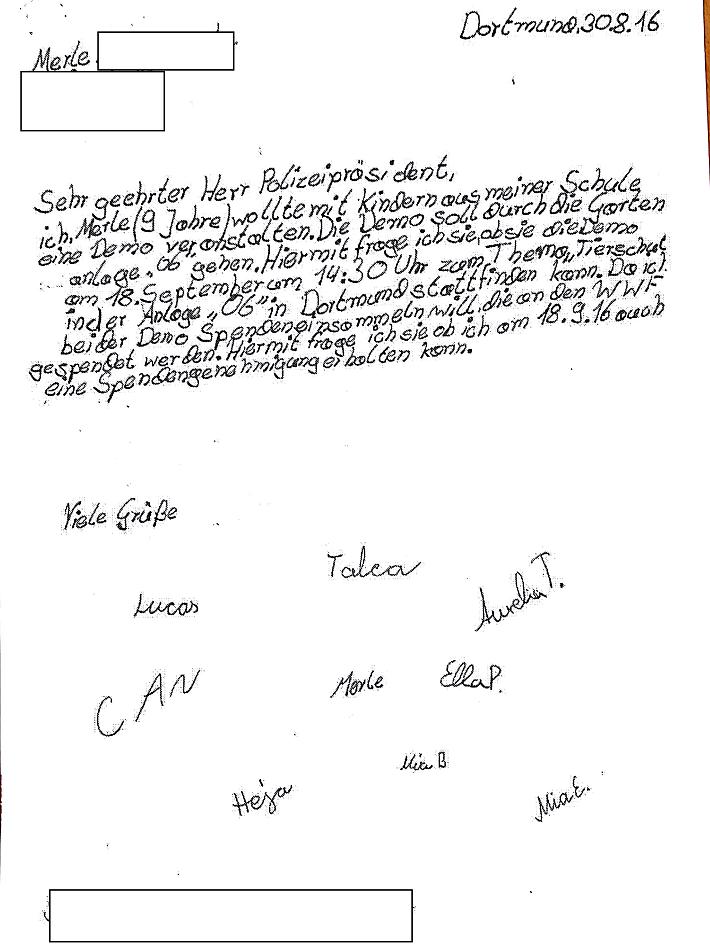 Dortmund, 30.8.16
Merle
Sehr geehrter Herr Polizeipräsident,
ich, Merle (9 Jahre) wollte mit Kindern aus meiner Schule
eine Demo veranstalten. Die Demo soll durch die Garten
anlage „06“ gehen. Hiermit frage ich sie, ob sie die Demo
am 18. September um 14:30 Uhr zum Thema „Tierschut
in der Anlage „06“ in Dortmund stattfinden kann. Da ich
bei der Demo Spenden einsammeln will, die an den WWF
gespendet werden. Hiermit frage ich sie ob ich am 18.9.16 auch
eine Spendengenehmigung erhalten kann.
Viele Grüße
Talea
Lucas
Aurelia T.
CAN
Merle
Ella P.
Mia B
Heja
Mia E.